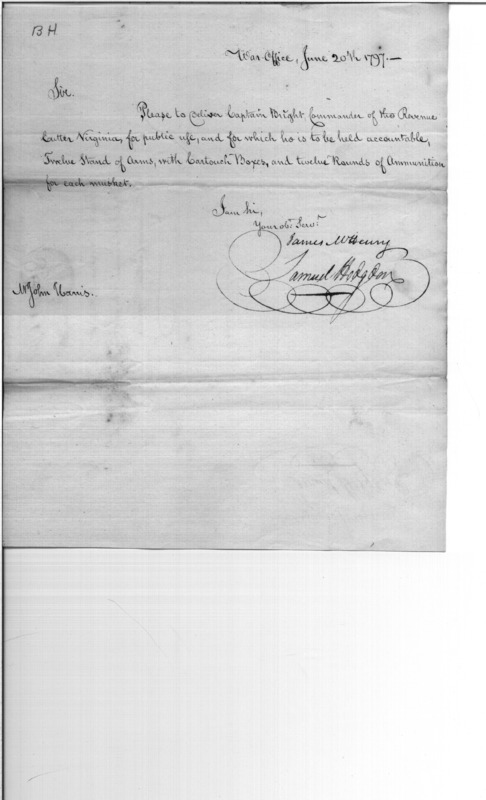 BH
War Office, June 20th 1797.—
Sir.
Please to deliver Captain Bright, Commander of the Revenue
Cutter Virginia, for public use, and for which he is to be held accountable,
Twelve Stand of Arms, with Cartouch Boxes, and twelve Rounds of Ammunition
for each musket.
I am Sir,
Your obt. Servt.
James McHenry
Samuel Hodgdon
Mr John Harris.